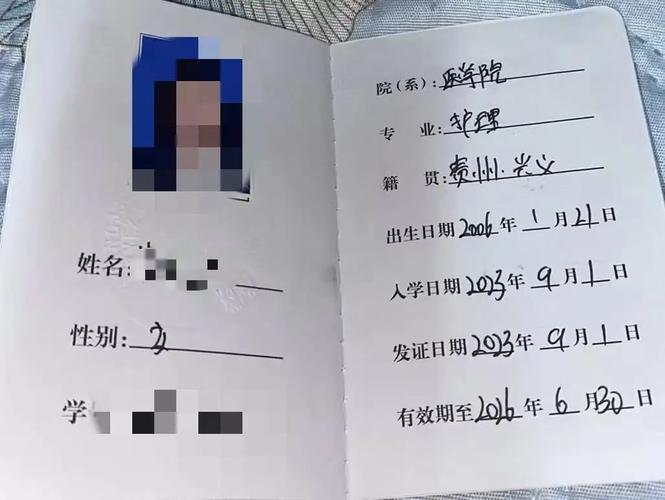 姓名:
性别: 女
学
院(系): 医学院
专 业: 护理
籍 贯: 贵州·兴义
出生日期 2006 年 1 月 21 日
入学日期 2023 年 9 月 1 日
发证日期 2023 年 9 月 1 日
有效期至 2026 年 6 月 30 日